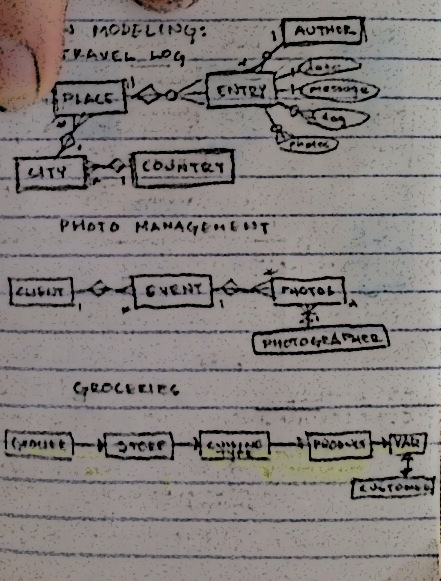 MODELING:
TRAVEL LOG
1 AUTHOR
PLACE ENTRY
message
photos
CITY COUNTRY
PHOTO MANAGEMENT
CLIENT EVENT PHOTOS
1 1
PHOTOGRAPHER
GROCERIES
STORE PRODUCT
CUSTOMER